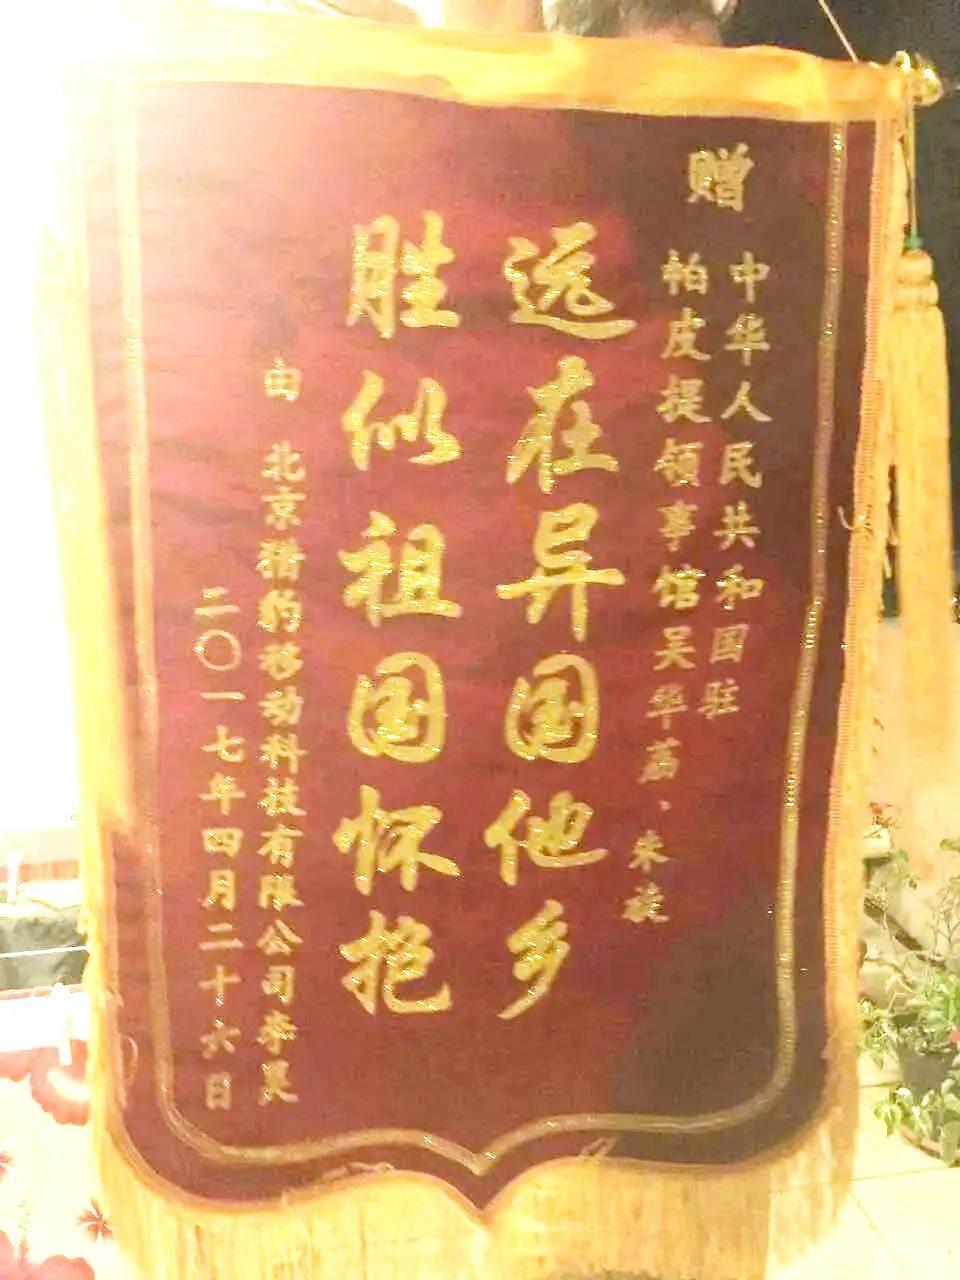 赠
中华人民共和国驻
帕皮提领事馆吴华荔、朱旋
远在异国他乡
胜似祖国怀抱
由 北京猎豹移动科技有限公司李昊
二〇一七年四月二十六日